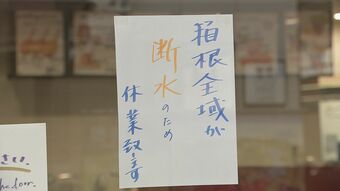 箱根全域が
断水のため
休業致します
さい。
the door.